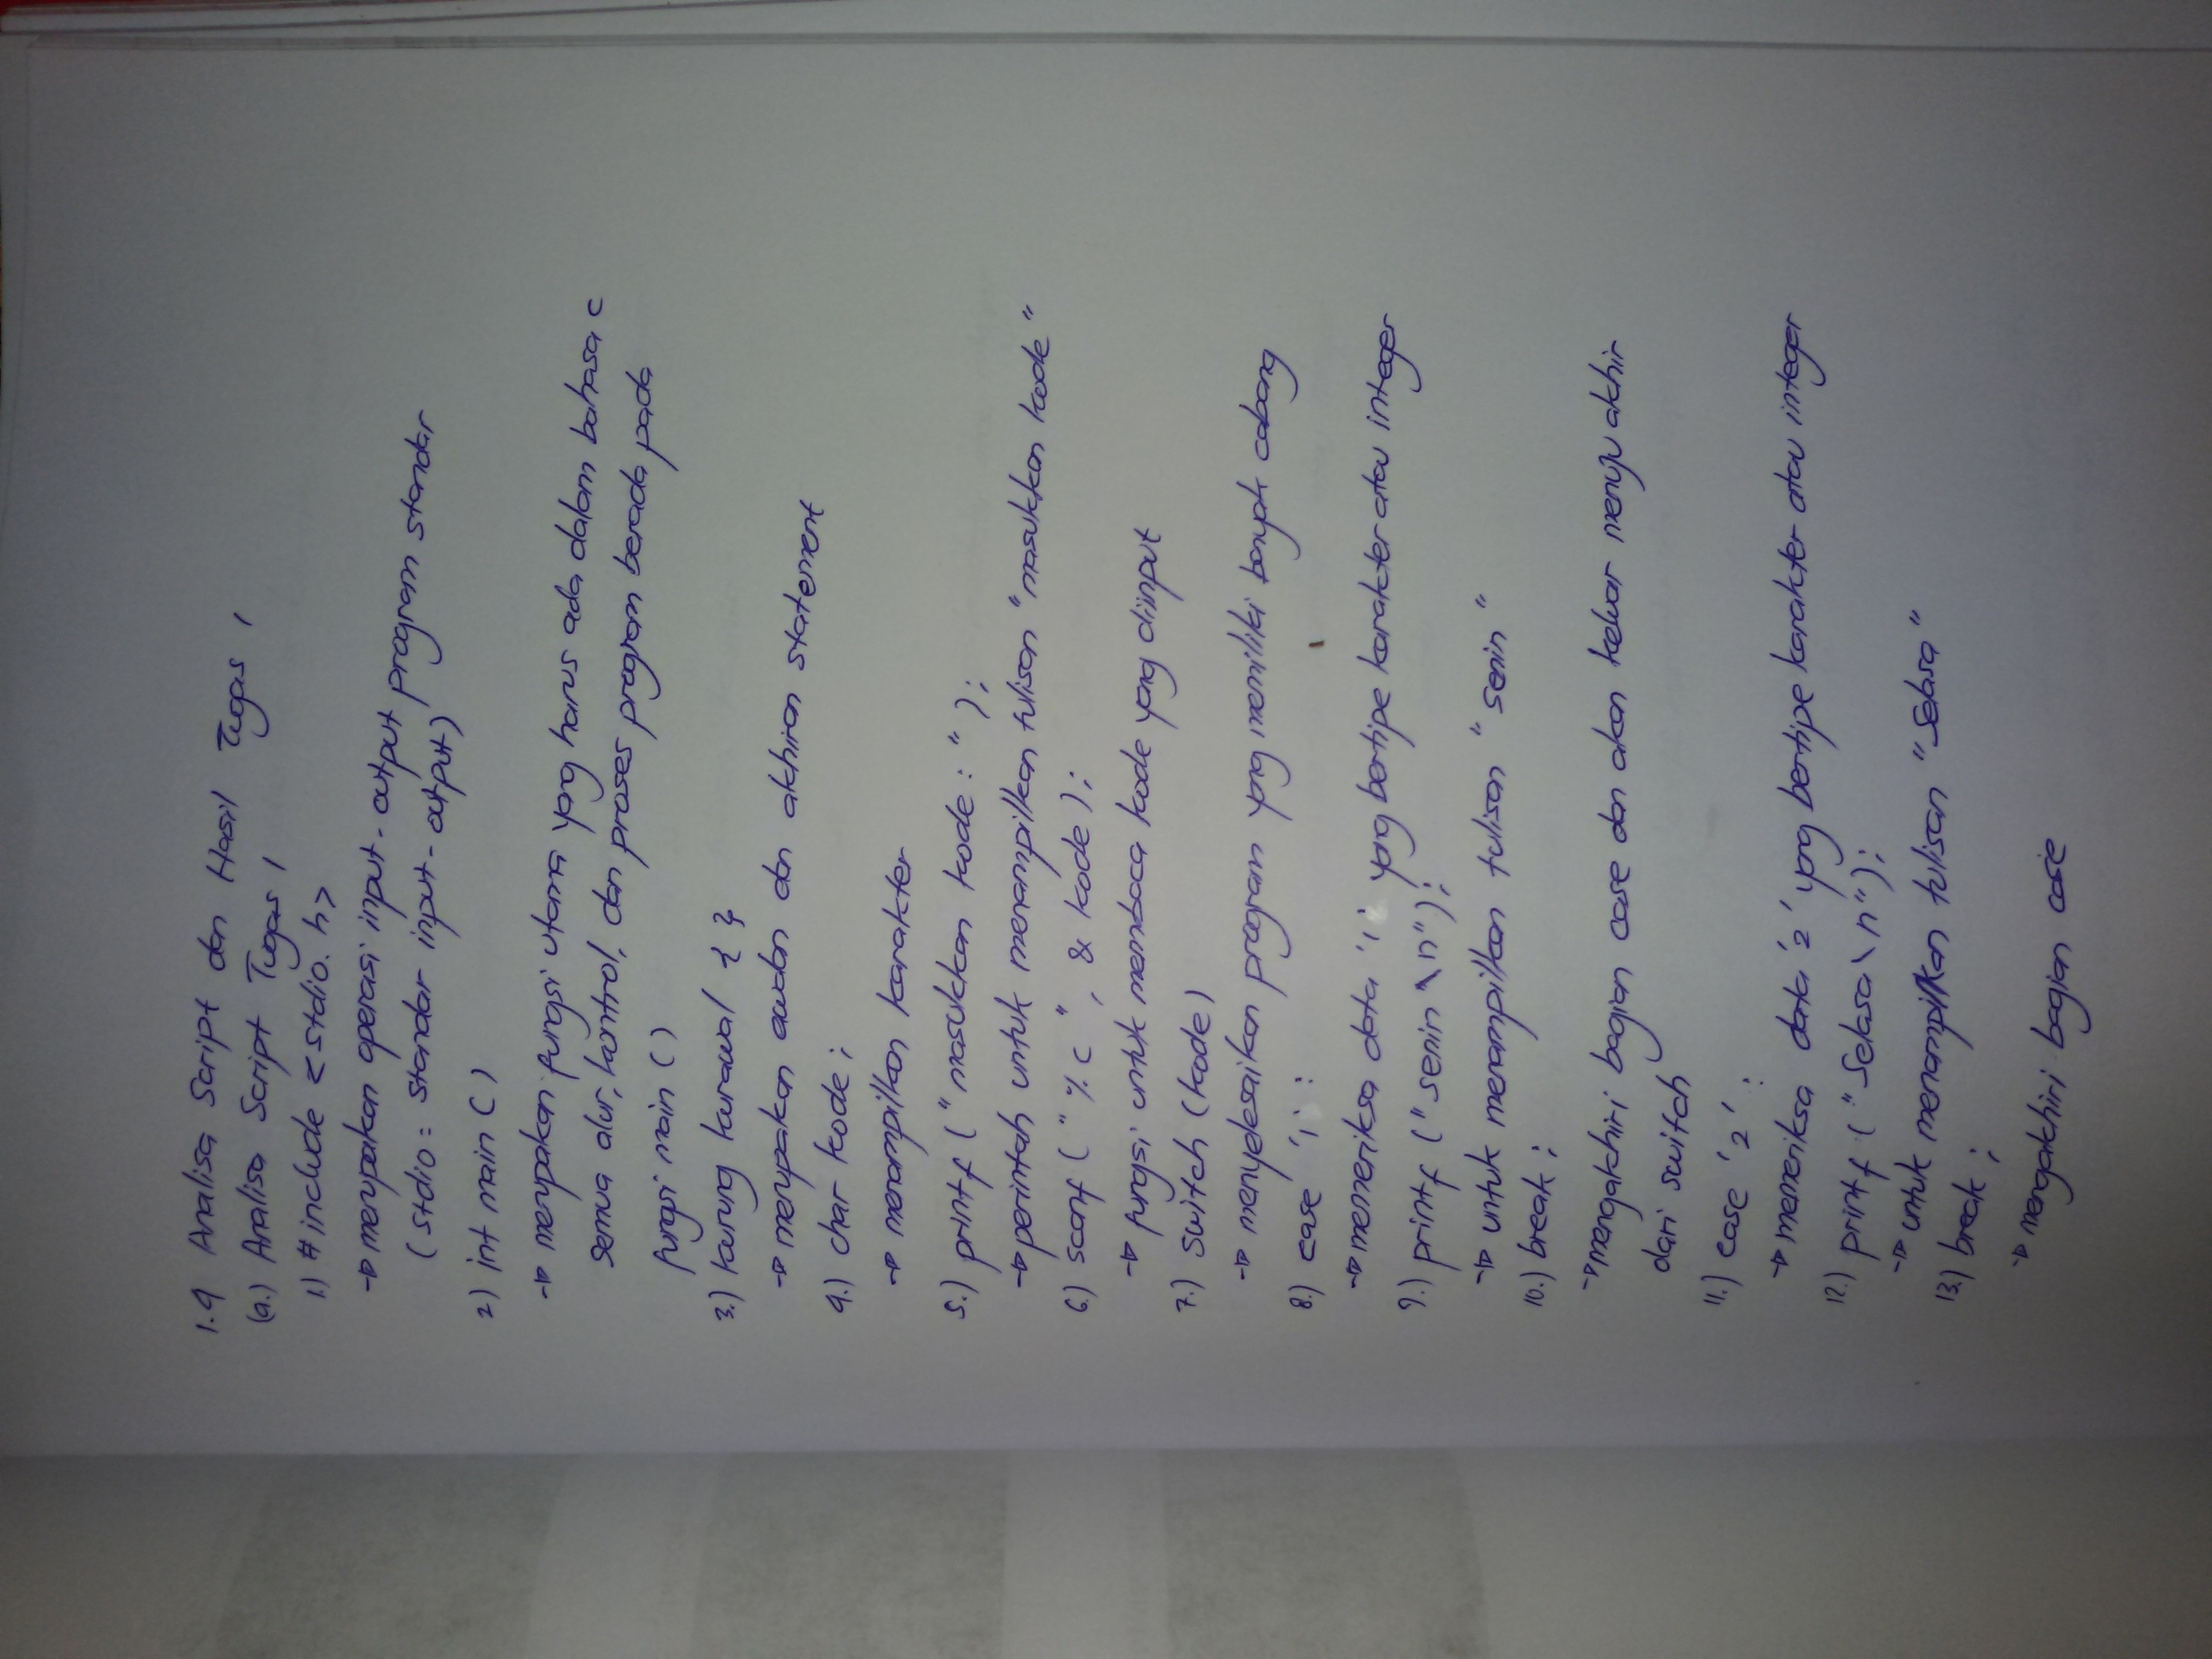 1.4 Analisa Script dan Hasil Tugas 1
(a.) Analisa Script Tugas 1
1.) #include <stdio.h>
→ merupakan operasi input-output program standar
(stdio = standar input-output)
2) int main ( )
→ merupakan fungsi utama yang harus ada dalam bahasa c
semua alur, kontrol, dan proses program berada pada
fungsi main ( )
3.) kurung kurawal { }
→ merupakan awalan dan akhiran statement
4.) char kode ;
→ menampilkan karakter
5.) printf ("masukkan kode : ");
→ perintah untuk menampilkan tulisan "masukkan kode"
6.) scanf ( "%c ", & kode );
→ fungsi untuk membaca kode yang diinput
7.) switch (kode)
→ menyelesaikan program yang memiliki banyak cabang
8.) case '1' :
→ memeriksa data '1' yang bertipe karakter atau integer
9.) printf ("senin \n");
→ untuk menampilkan tulisan "senin"
10.) break ;
→ mengakhiri bagian case dan akan keluar menuju akhir
dari switch
11.) case '2' :
→ memeriksa data '2' yang bertipe karakter atau integer
12.) printf ("Selasa\n");
→ untuk menampilkan tulisan "Selasa"
13.) break ;
→ mengakhiri bagian case